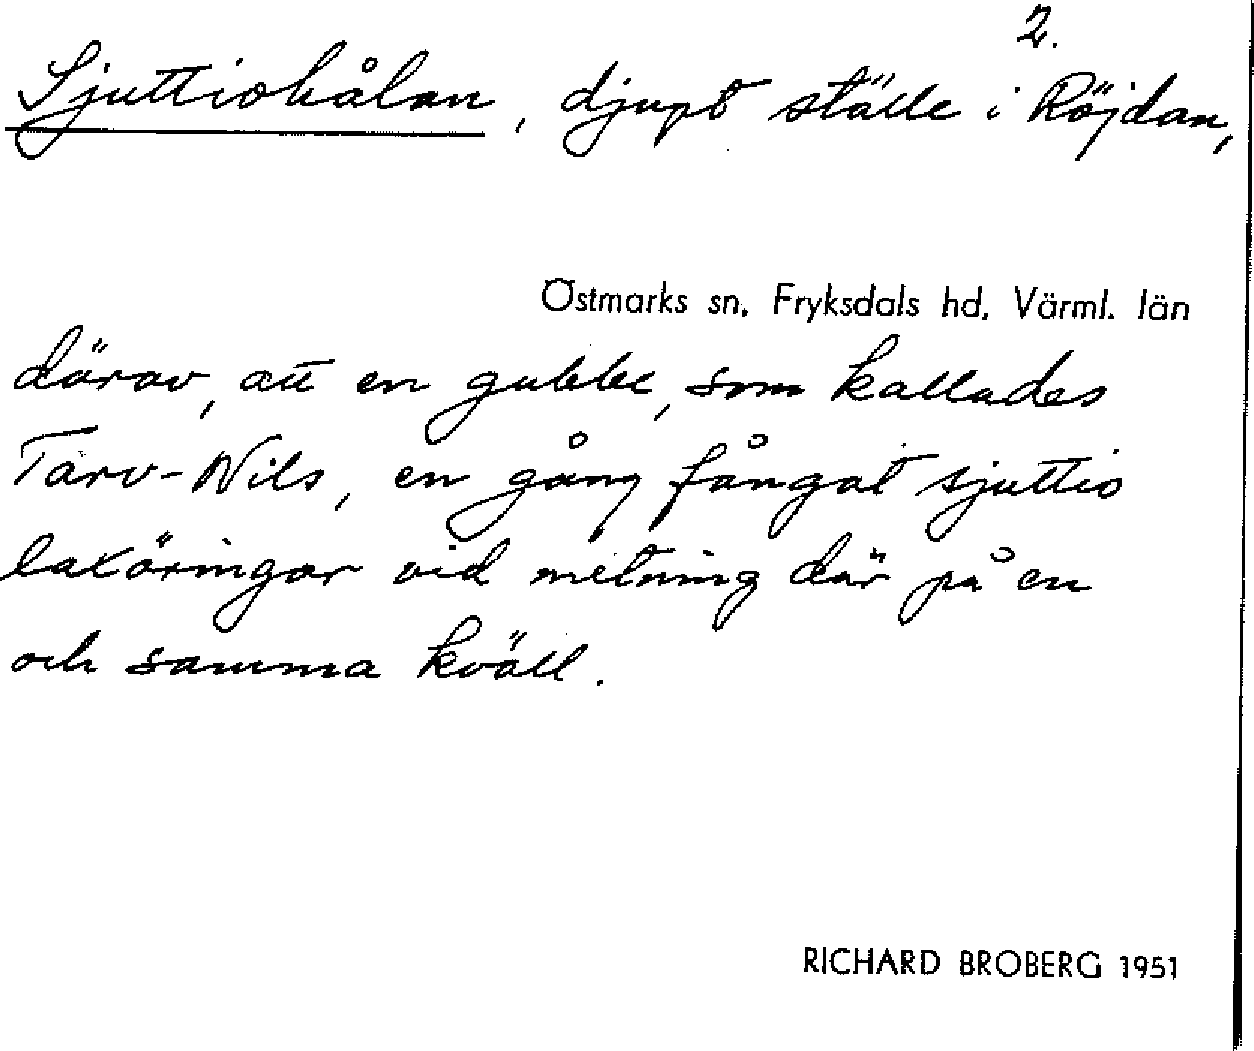 2.
Sjuttiohålan, djupt ställe i Röjdan,
Östmarks sn, Fryksdals hd, Värml. län
därav, att en gubbe, som kallades
Tarv-Nils, en gång fångat sjuttio
laxöringar vid metning där på en
och samma kväll.
RICHARD BROBERG 1951